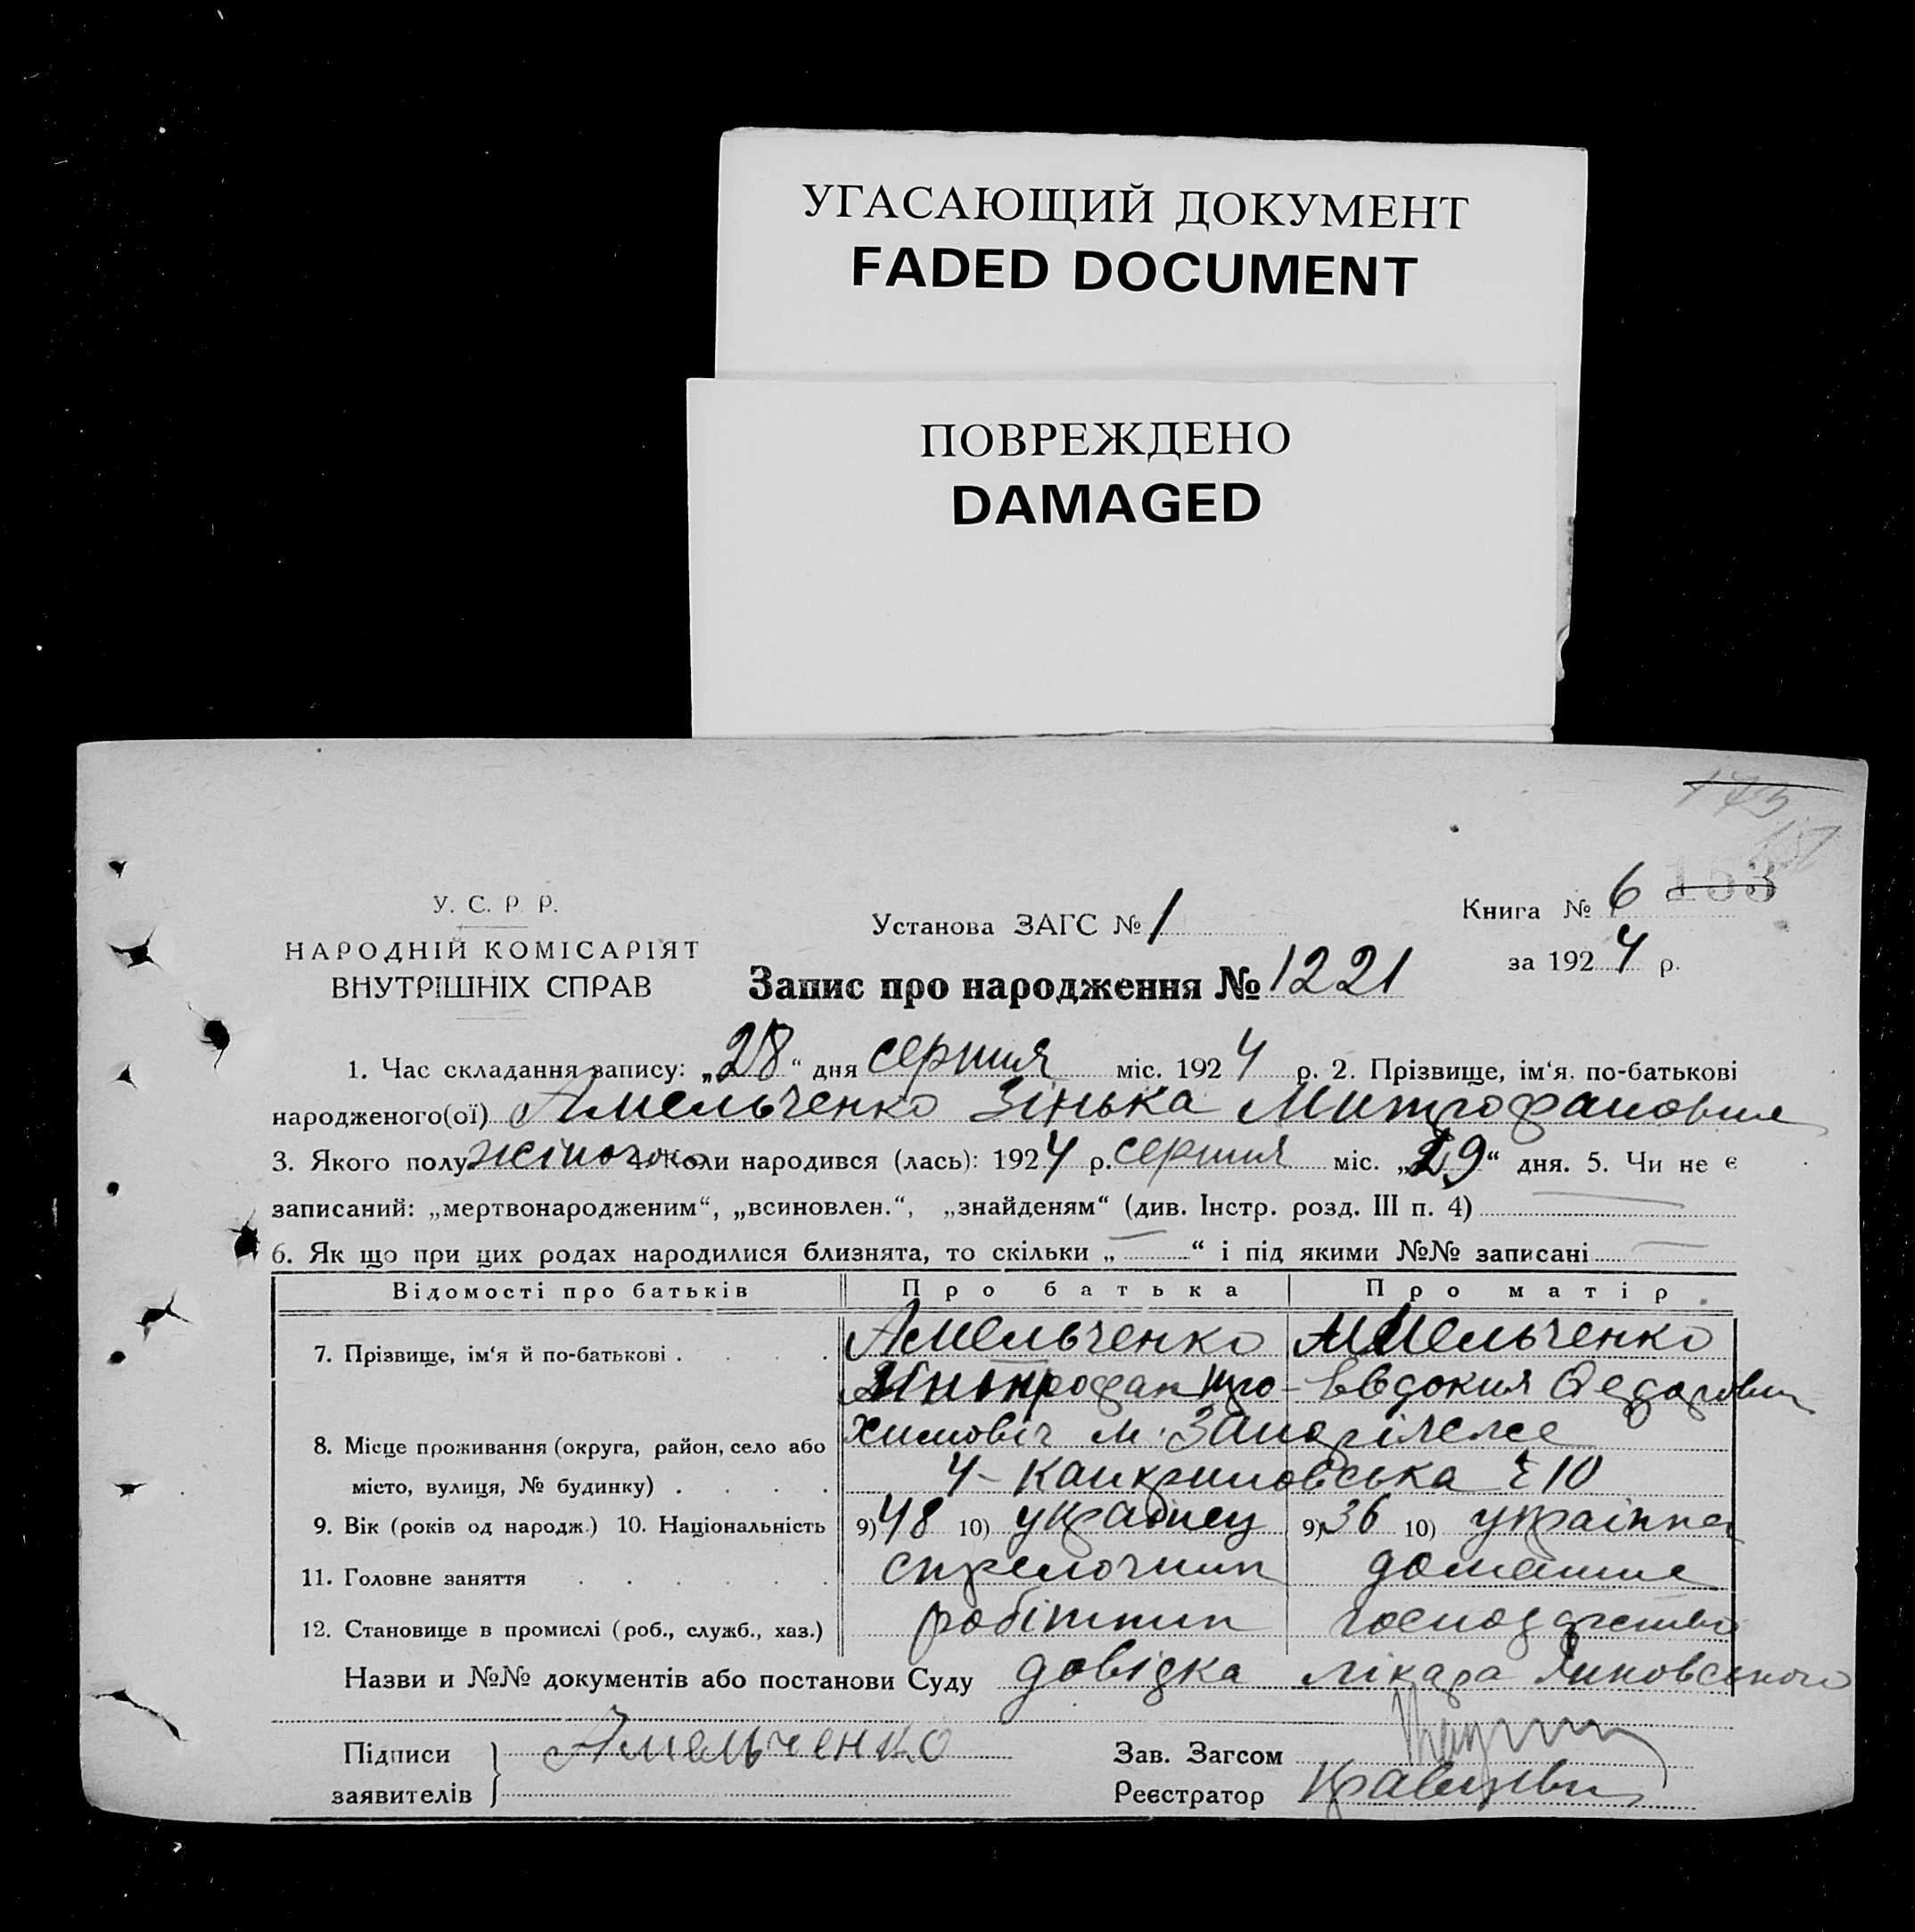 УГАСАЮЩИЙ ДОКУМЕНТ
FADED DOCUMENT
ПОВРЕЖДЕНО
DAMAGED
173
153
У. С. Р. Р.
НАРОДНІЙ КОМІСАРІЯТ
ВНУТРІШНІХ СПРАВ
Установа ЗАГС № 1
Книга № 6
за 1924 р.
Запис про народження № 1221
1. Час складання запису: „28“ дня серпня міс. 1924 р. 2. Прізвище, ім‘я, по-батькові
народженого(ої) Амельченко Зінька Митрофановна
3. Якого полу жіночого 4. Коли народився (лась): 1924 р. серпня міс. „19“ дня. 5. Чи не є
записаний: „мертвонародженим“, „всиновлен.“, „знайденям“ (див. Інстр. розд. III п. 4) —
6. Як що при цих родах народилися близнята, то скільки „ — “ і під якими №№ записані —
Відомості про батьків Про батька Про матір
7. Прізвище, ім‘я й по-батькові . . . . Амельченко Амельченко
Євдокия Федоровн
8. Місце проживання (округа, район, село або химовіч м. Запоріжже
місто, вулиця, № будинку) . . . . 4- 10
9. Вік (років од народж.) 10. Національність 9) 48 10) українец 9) 36 10) українка
11. Головне заняття . . . . . . стрелочник домашне
12. Становище в промислі (роб., служб., хаз.) робітник господарство
Назви и №№ документів або постанови Суду довідка лікаря
Підписи Амельченко Зав. Загсом
заявителів Реєстратор